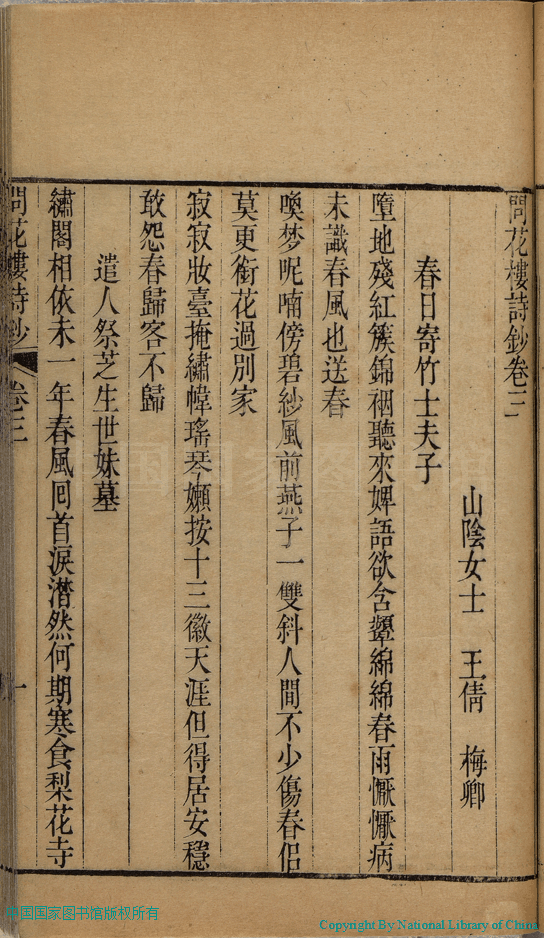 問花樓詩鈔卷三
山陰女士　王倩　梅卿
春日寄竹士夫子
墮地殘紅簇錦裀聽來婢語欲含顰綿綿春雨懨懨病
未識春風也送春
喚梦呢喃傍碧紗風前燕子一雙斜人間不少傷春侶
莫更銜花過別家
寂寂妝臺掩繡幃瑤琴嬾按十三徽天涯但得居安穩
敢怨春歸客不歸
遣人祭芝生世妹墓
繡閣相依未一年春風回首淚潸然何期寒食梨花寺
問花樓詩鈔　卷三　一
中国国家图书馆版权所有
Copyright By National Library of China